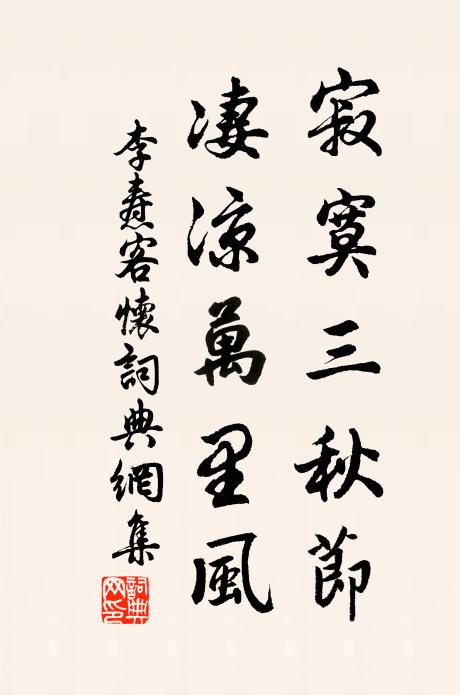 寂寞三秋節
凄涼萬里風
李燾客懷詞典網集
詞典网印